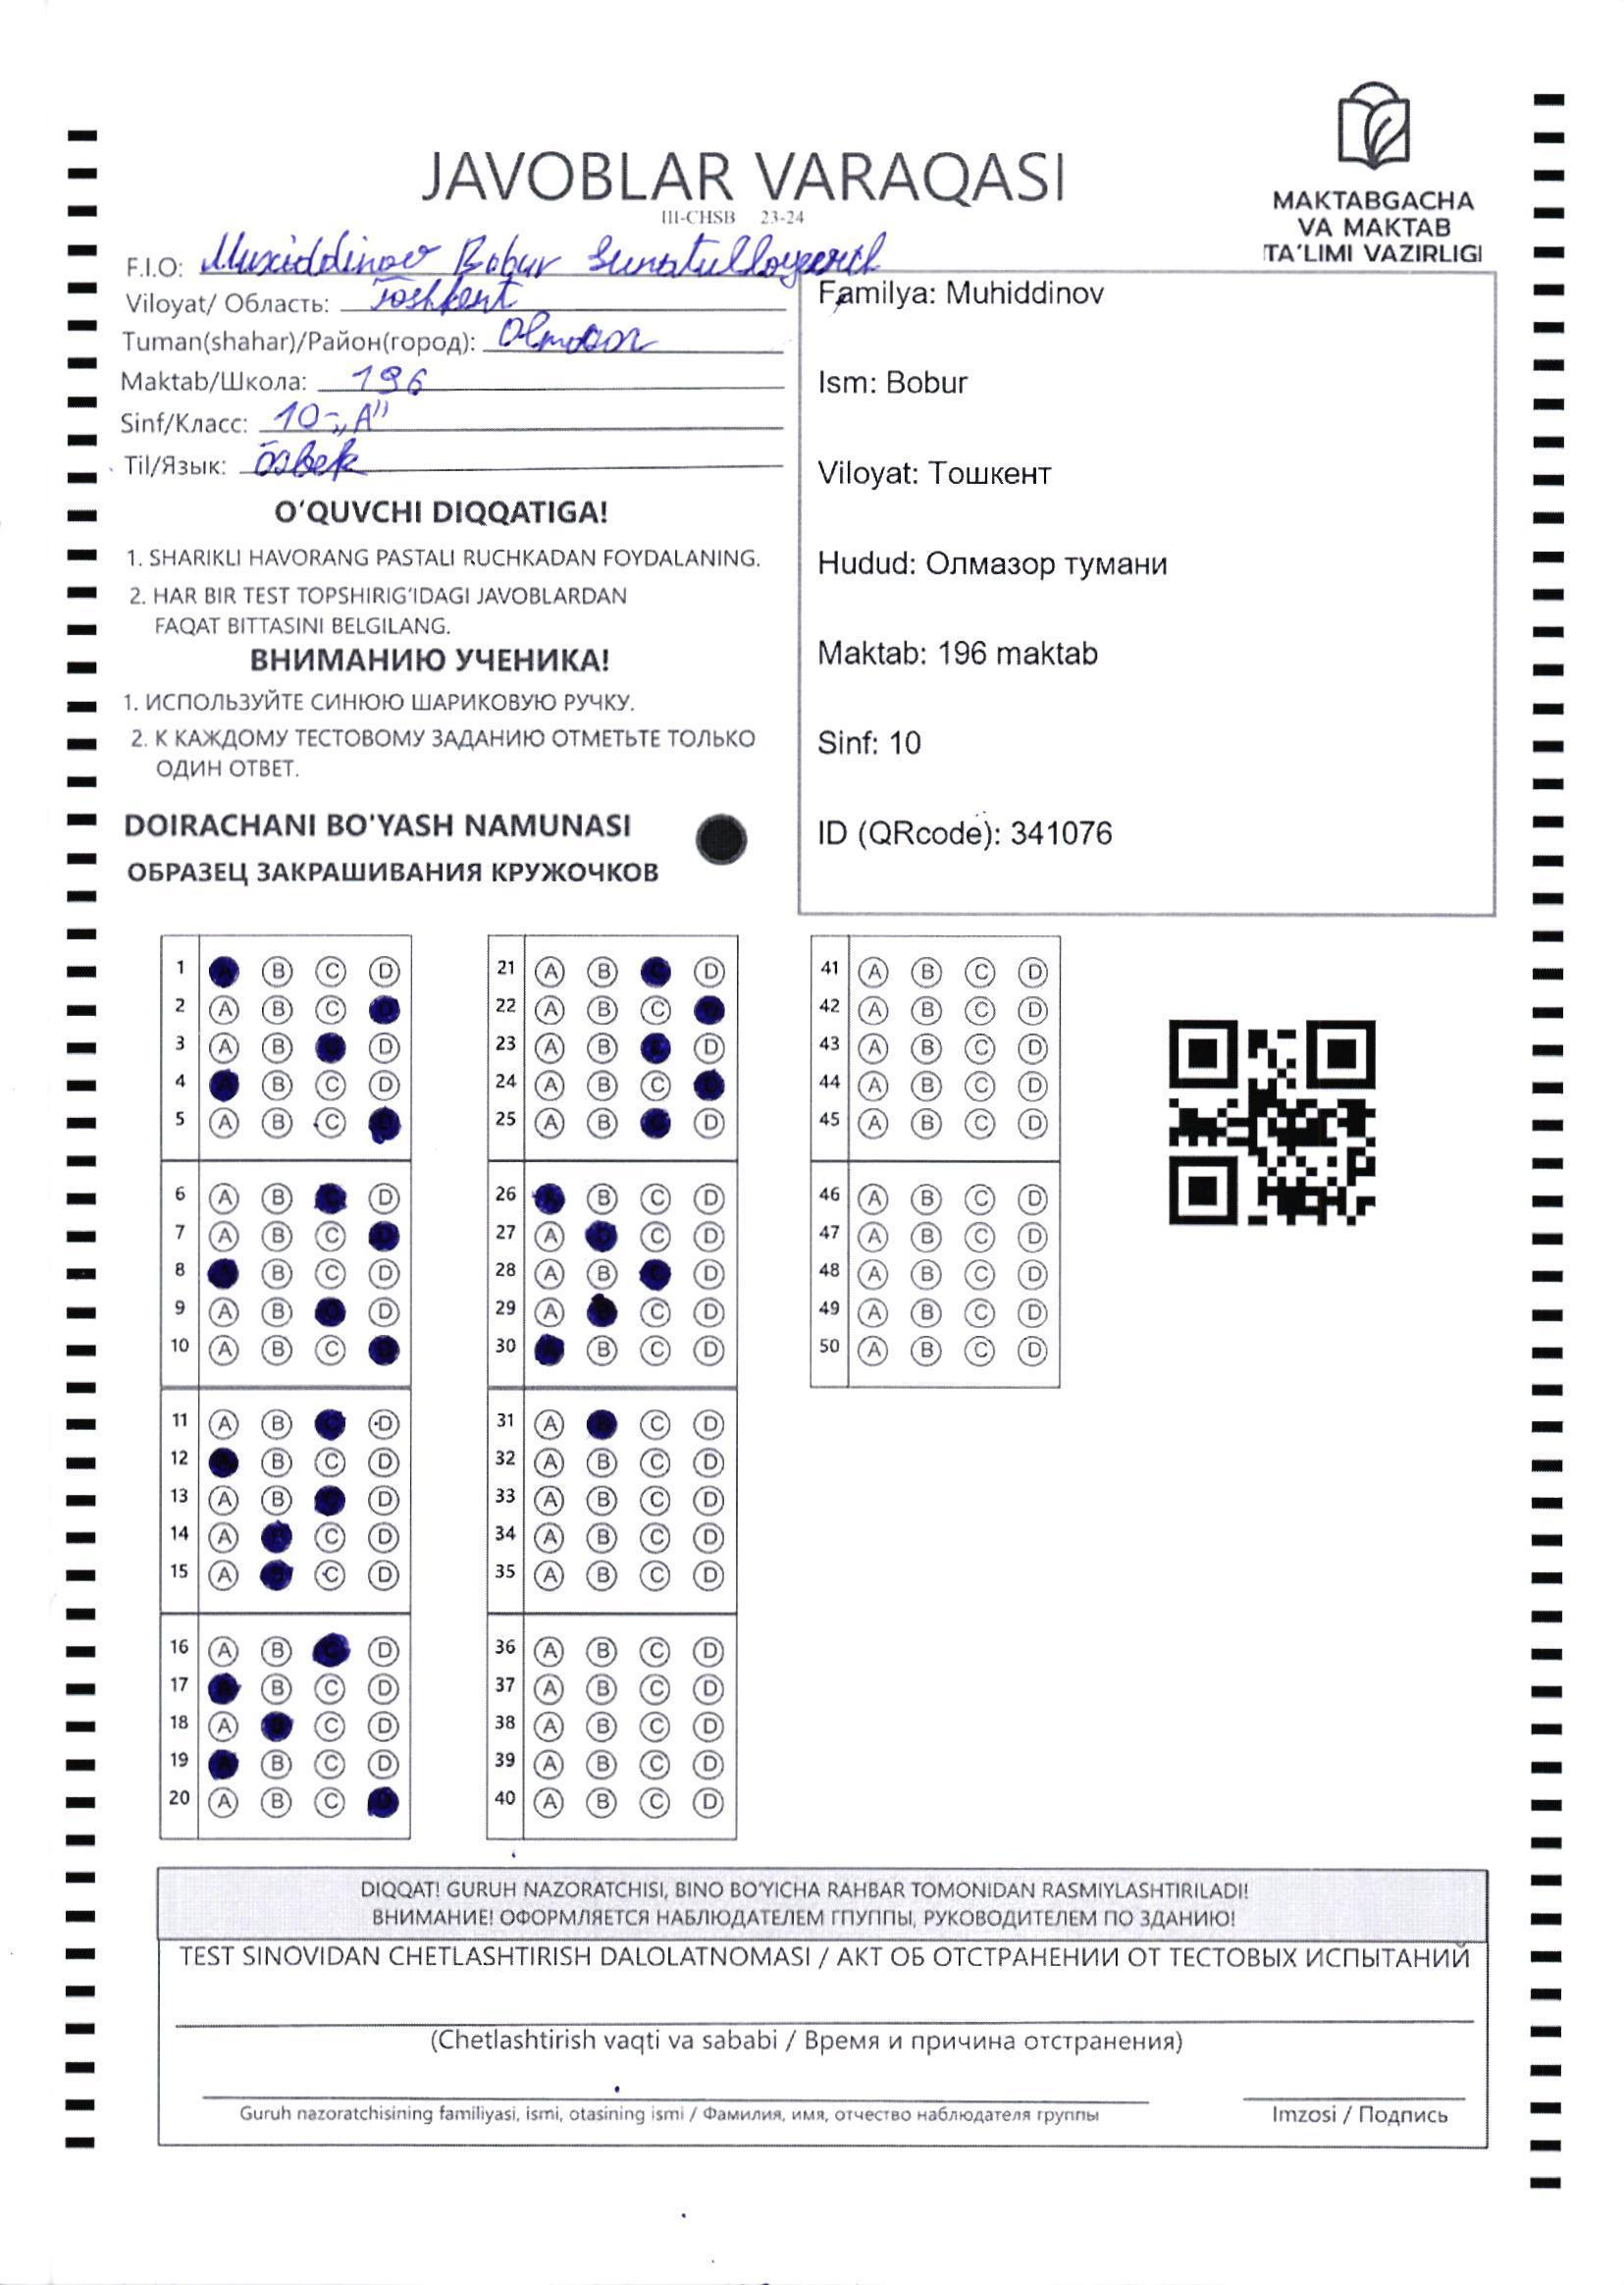 JAVOBLAR VARAQASI
III-CHSB 23-24
MAKTABGACHA
VA MAKTAB
TA'LIMI VAZIRLIGI
F.I.O: Muxiddinov Bobur Sunatulloyevich
Viloyat/ Область: Toshkent
Tuman(shahar)/Район(город): Olmazor
Maktab/Школа: 196
Sinf/Класс: 10-„A"
Til/Язык: ōzbek
O'QUVCHI DIQQATIGA!
1. SHARIKLI HAVORANG PASTALI RUCHKADAN FOYDALANING.
2. HAR BIR TEST TOPSHIRIG'IDAGI JAVOBLARDAN
FAQAT BITTASINI BELGILANG.
ВНИМАНИЮ УЧЕНИКА!
1. ИСПОЛЬЗУЙТЕ СИНЮЮ ШАРИКОВУЮ РУЧКУ.
2. К КАЖДОМУ ТЕСТОВОМУ ЗАДАНИЮ ОТМЕТЬТЕ ТОЛЬКО
ОДИН ОТВЕТ.
DOIRACHANI BO'YASH NAMUNASI
ОБРАЗЕЦ ЗАКРАШИВАНИЯ КРУЖОЧКОВ
Familya: Muhiddinov
Ism: Bobur
Viloyat: Тошкент
Hudud: Олмазор тумани
Maktab: 196 maktab
Sinf: 10
ID (QRcode): 341076
1 A B C D
2 A B C D
3 A B C D
4 A B C D
5 A B C D
6 A B C D
7 A B C D
8 A B C D
9 A B C D
10 A B C D
11 A B C D
12 A B C D
13 A B C D
14 A B C D
15 A B C D
16 A B C D
17 A B C D
18 A B C D
19 A B C D
20 A B C D
21 A B C D
22 A B C D
23 A B C D
24 A B C D
25 A B C D
26 A B C D
27 A B C D
28 A B C D
29 A B C D
30 A B C D
31 A B C D
32 A B C D
33 A B C D
34 A B C D
35 A B C D
36 A B C D
37 A B C D
38 A B C D
39 A B C D
40 A B C D
41 A B C D
42 A B C D
43 A B C D
44 A B C D
45 A B C D
46 A B C D
47 A B C D
48 A B C D
49 A B C D
50 A B C D
DIQQAT! GURUH NAZORATCHISI, BINO BO'YICHA RAHBAR TOMONIDAN RASMIYLASHTIRILADI!
ВНИМАНИЕ! ОФОРМЛЯЕТСЯ НАБЛЮДАТЕЛЕМ ГПУППЫ, РУКОВОДИТЕЛЕМ ПО ЗДАНИЮ!
TEST SINOVIDAN CHETLASHTIRISH DALOLATNOMASI / АКТ ОБ ОТСТРАНЕНИИ ОТ ТЕСТОВЫХ ИСПЫТАНИЙ
(Chetlashtirish vaqti va sababi / Время и причина отстранения)
Guruh nazoratchisining familiyasi, ismi, otasining ismi / Фамилия, имя, отчество наблюдателя группы
Imzosi / Подпись